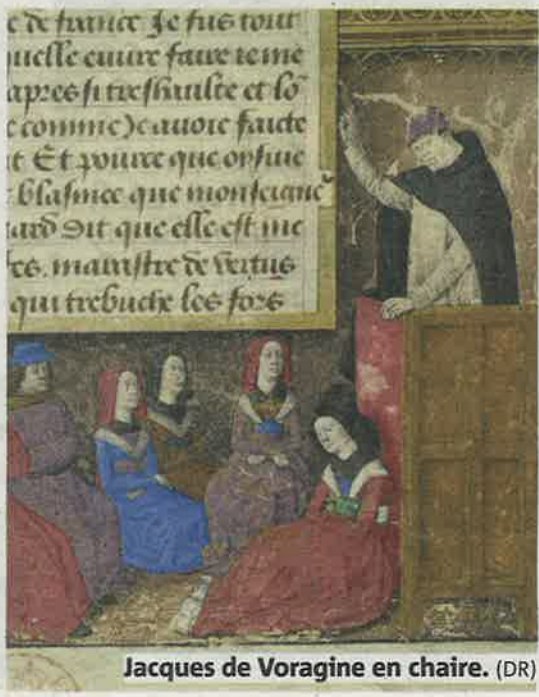 e de france Je fus tout
quelle euure faire ieme
apres si treshaulte et lo
e comme Je auoie faicte
t Et pource que oysiue
blasmee que monseigne
ard dit que elle est me
res. marrastre de vertus
qui trebuche les fors
Jacques de Voragine en chaire. (DR)